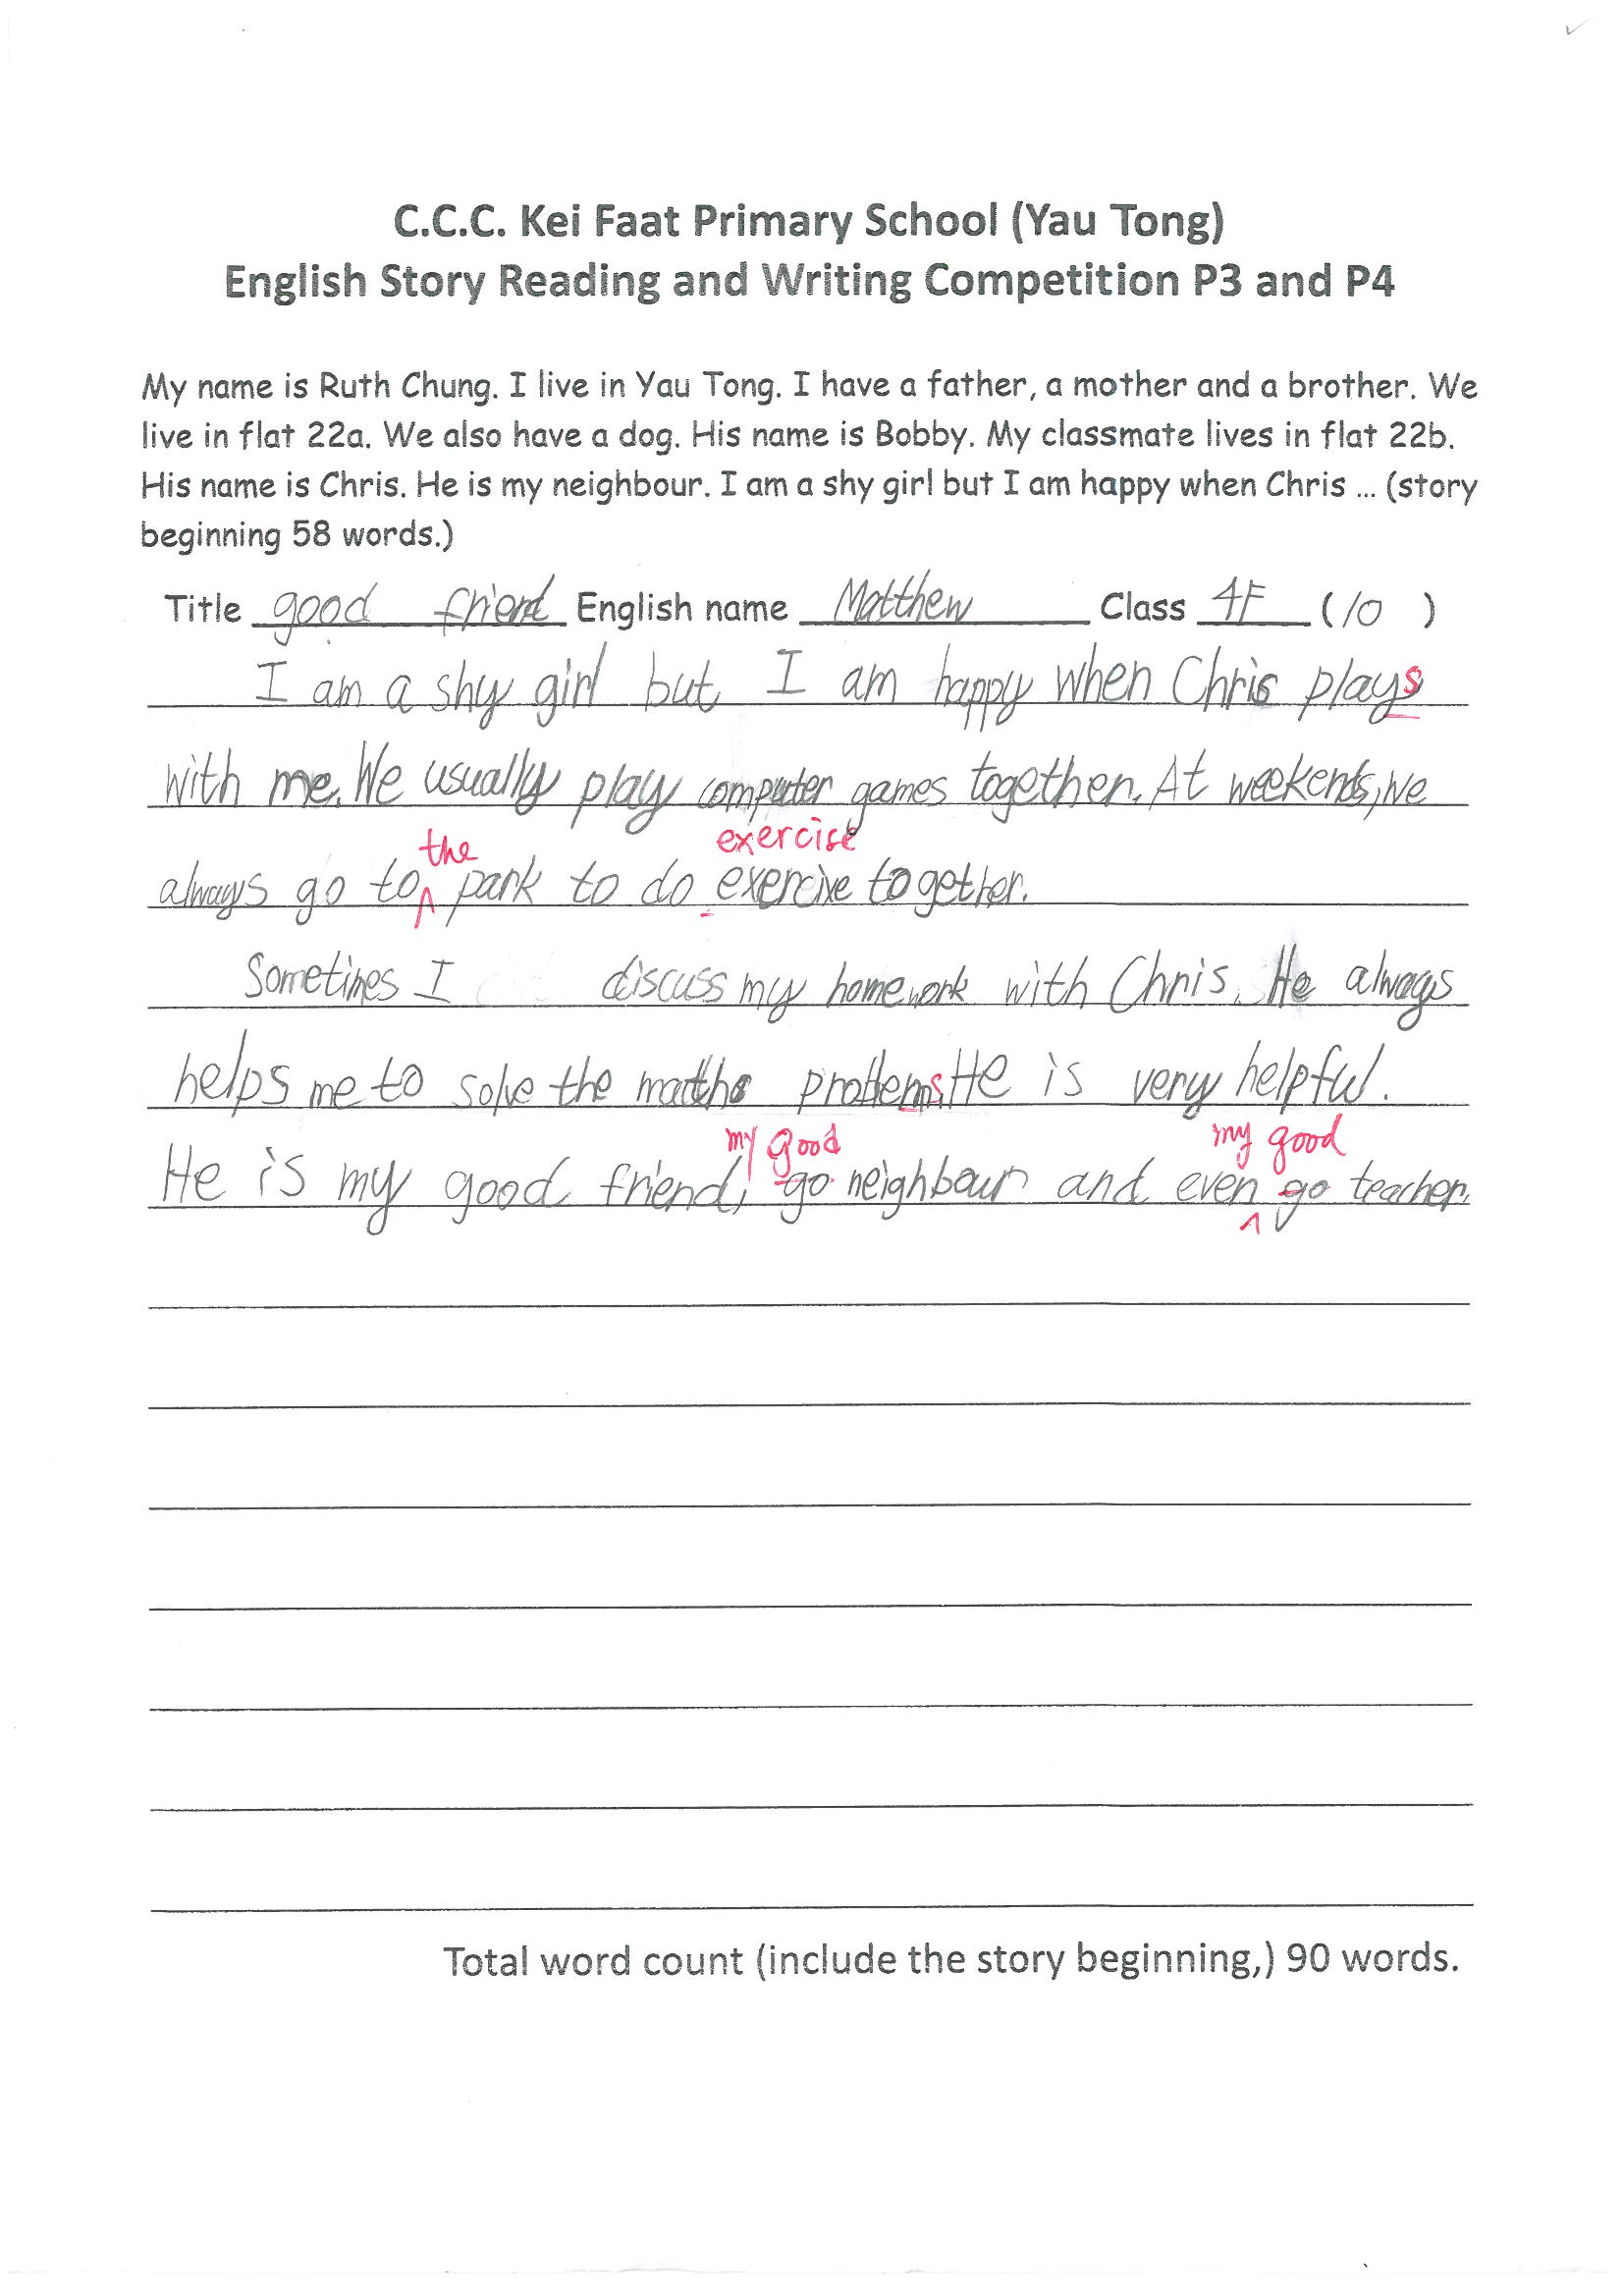 C.C.C. Kei Faat Primary School (Yau Tong)
English Story Reading and Writing Competition P3 and P4
My name is Ruth Chung. I live in Yau Tong. I have a father, a mother and a brother. We
live in flat 22a. We also have a dog. His name is Bobby. My classmate lives in flat 22b.
His name is Chris. He is my neighbour. I am a shy girl but I am happy when Chris ... (story
beginning 58 words.)
Title good friend English name Matthew Class 4F (10 )
I am a shy girl but I am happy when Chris plays
with me. We usually play computer games together. At weekends, we
the exercise
always go to park to do exercixe together.
Sometimes I discuss my homework with Chris. He always
helps me to solve the maths problems. He is very helpful.
my good my good
He is my good friend, go neighbour and even go teacher.
Total word count (include the story beginning,) 90 words.